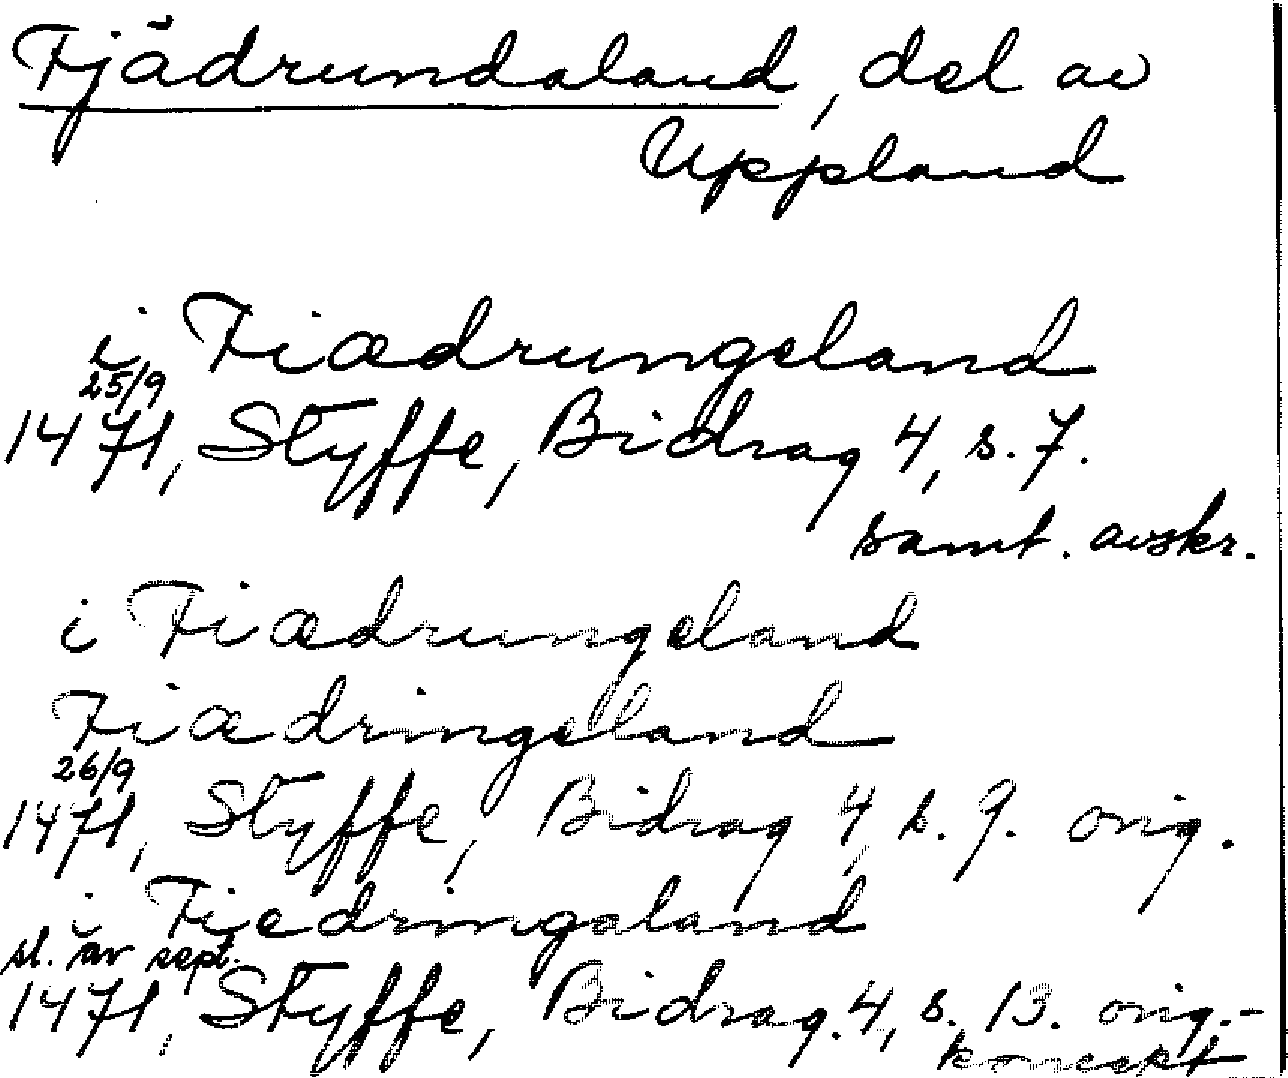 Fjädrundaland, del av
Uppland
i Fiædrungeland
25/9
1471, Styffe, Bidrag 4, s. 7.
samt. avskr.
i Fiædrungeland
Fiædringeland
26/9
1471, Styffe, Bidrag 4, s. 9. orig.
i Fiedringaland
sl. av sept.
1471, Styffe, Bidrag. 4, s. 13. orig.-
koncept